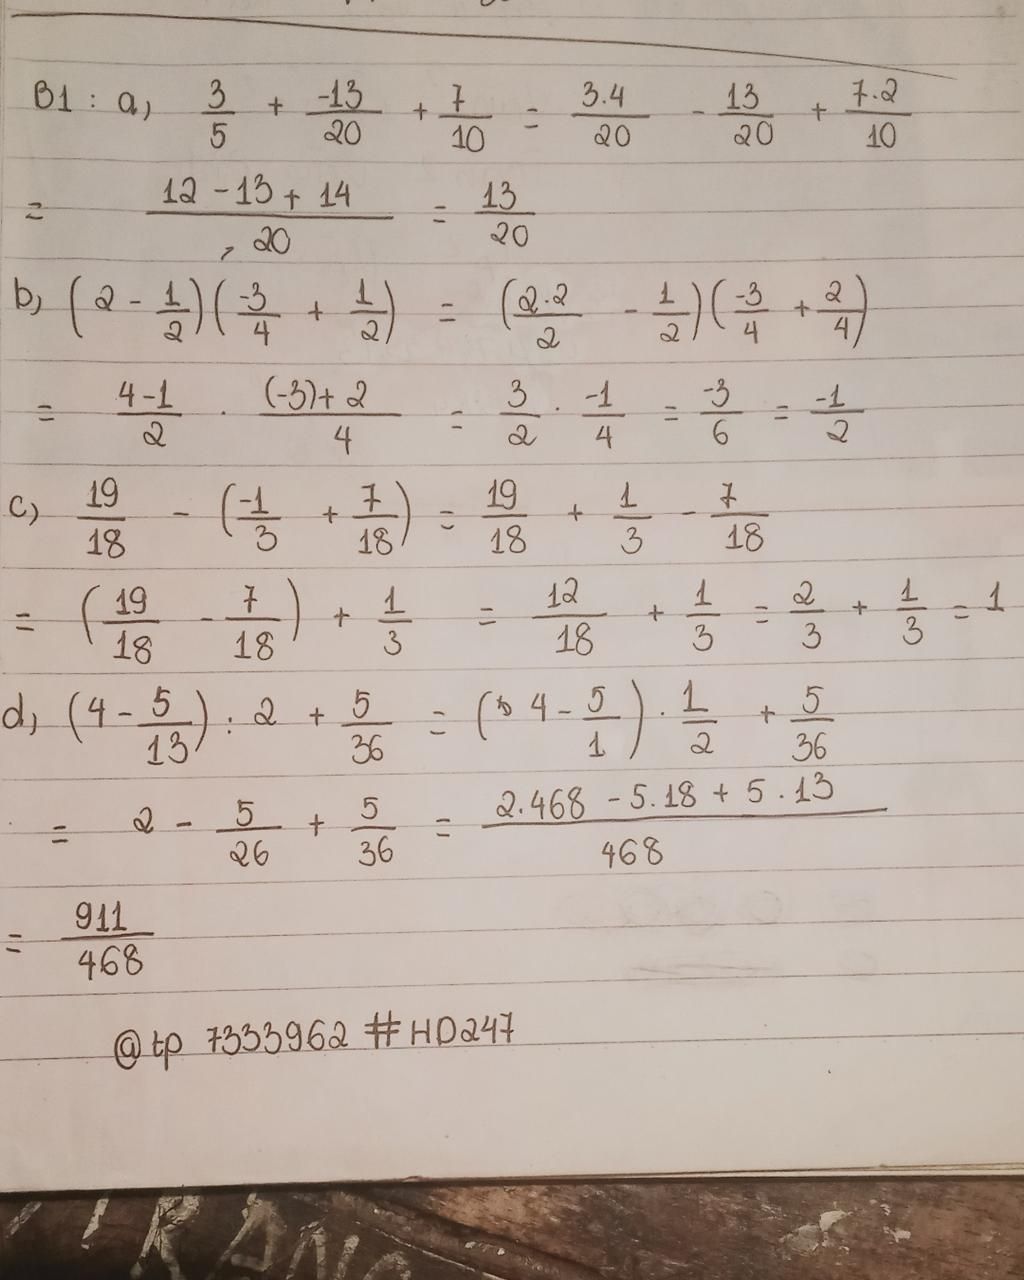 B1 : a, 3/5 + -13/20 + 7/10 = 3.4/20 - 13/20 + 7.2/10
= 12 - 13 + 14/20 = 13/20
b, (2 - 1/2)(-3/4 + 1/2) = (2.2/2 - 1/2)(-3/4 + 2/4)
= 4-1/2 . (-3)+2/4 = 3/2 . -1/4 = -3/6 = -1/2
c, 19/18 - (-1/3 + 7/18) = 19/18 + 1/3 - 7/18
= (19/18 - 7/18) + 1/3 = 12/18 + 1/3 = 2/3 + 1/3 = 1
d, (4 - 5/13) : 2 + 5/36 = (4 - 5/1) . 1/2 + 5/36
= 2 - 5/26 + 5/36 = 2.468 - 5.18 + 5.13/468
= 911/468
@tp 7333962 #HD247